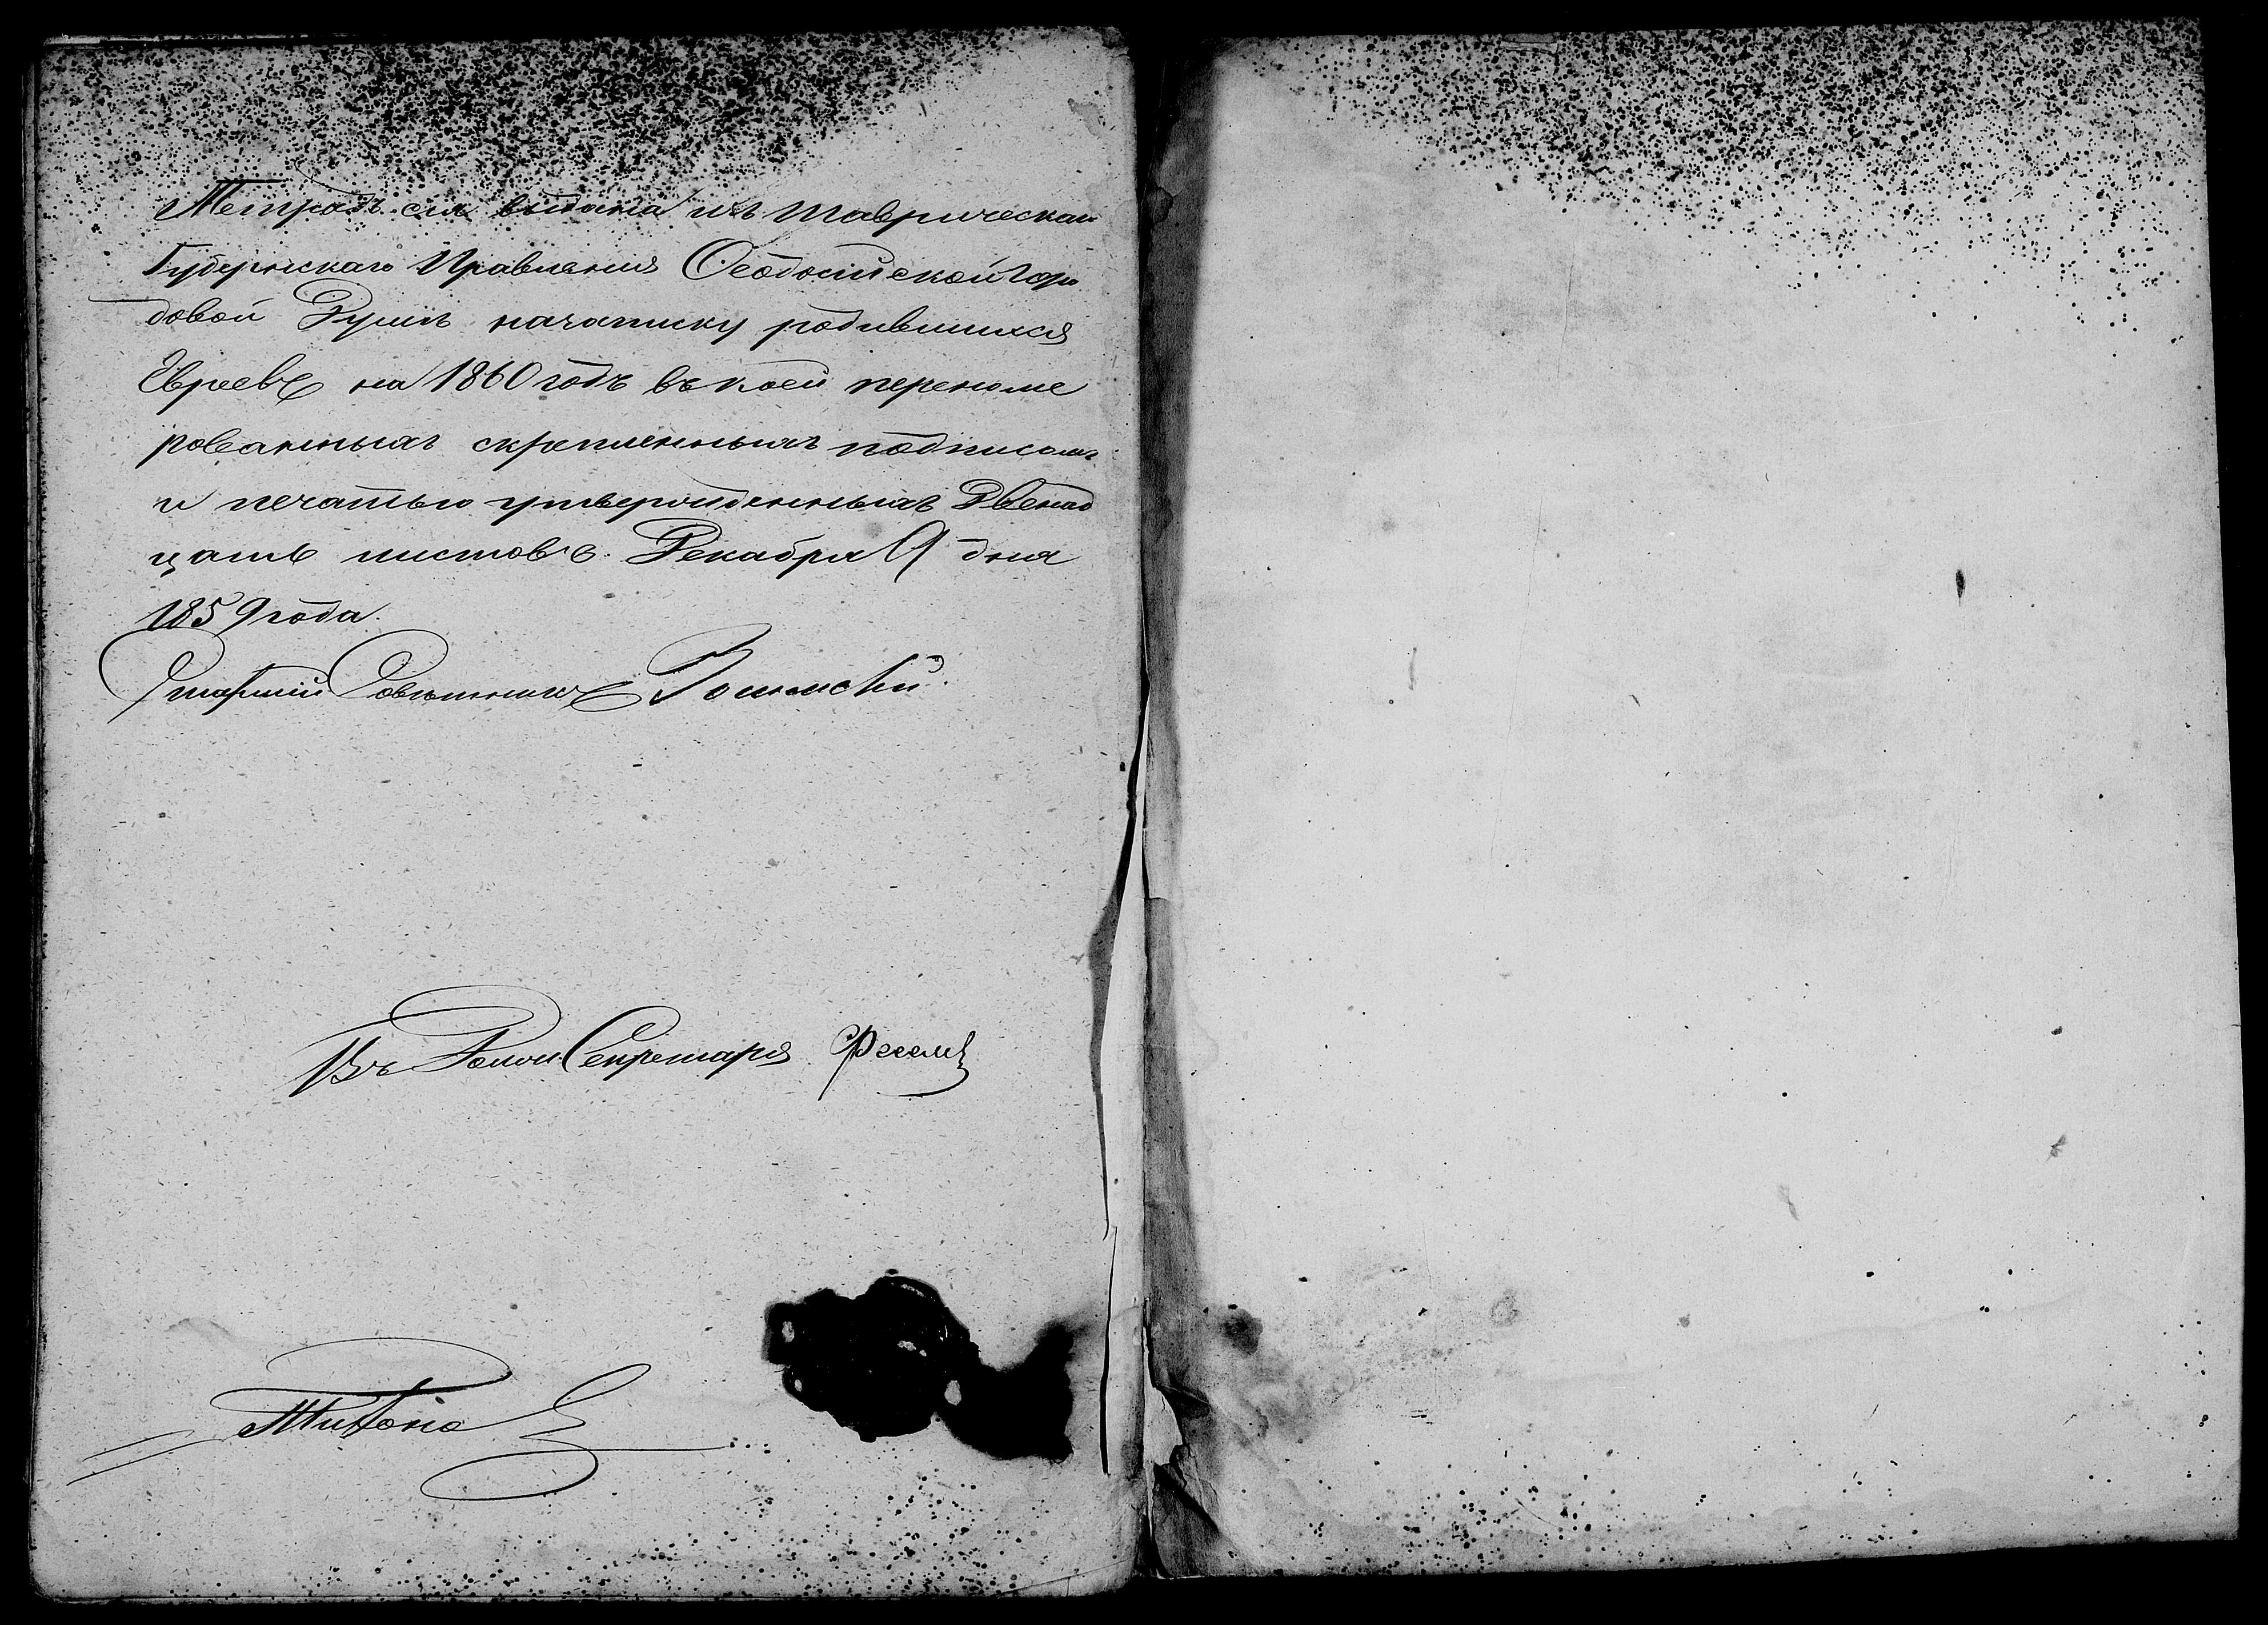 Тетрадь сія выдана изъ Таврическаго
Губернскаго Правленія Ѳеодосійской Горо
довой Думѣ на записку родившихся
Евреевъ на 1860 годъ въ коей перенуме
рованныхъ скрепленныхъ подписомъ
и печатью утвержденныхъ Двенад
цать листовъ. Декабря 9 дня
1859 года.
Старшій Совѣтникъ
Въ Долж. Секретаря